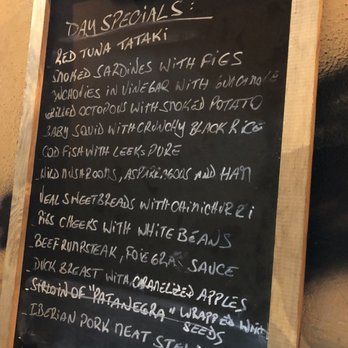 DAY SPECIALS:
RED TUNA TATAKI
SMOKED SARDINES WITH FIGS
ANCHOVIES IN VINEGAR WITH GUACAMOLE
GRILLED OCTOPUS WITH SMOKED POTATO
BABY SQUID WITH CRUNCHY BLACK RICE
COD FISH WITH LEEKS PURE
WILD MUSHROOMS, ASPARENGOUS AND HAM
VEAL SWEETBREADS WITH CHIMICHURRI
PIGS CHEEKS WITH WHITE BEANS
BEEF RUMPSTEAK, FOIE GRAS SAUCE
DUCK BREAST WITH CARAMELIZED APPLES
SIRLOIN OF "PATANEGRA" WRAPPED WITH
SEEDS
IBERIAN PORK MEAT